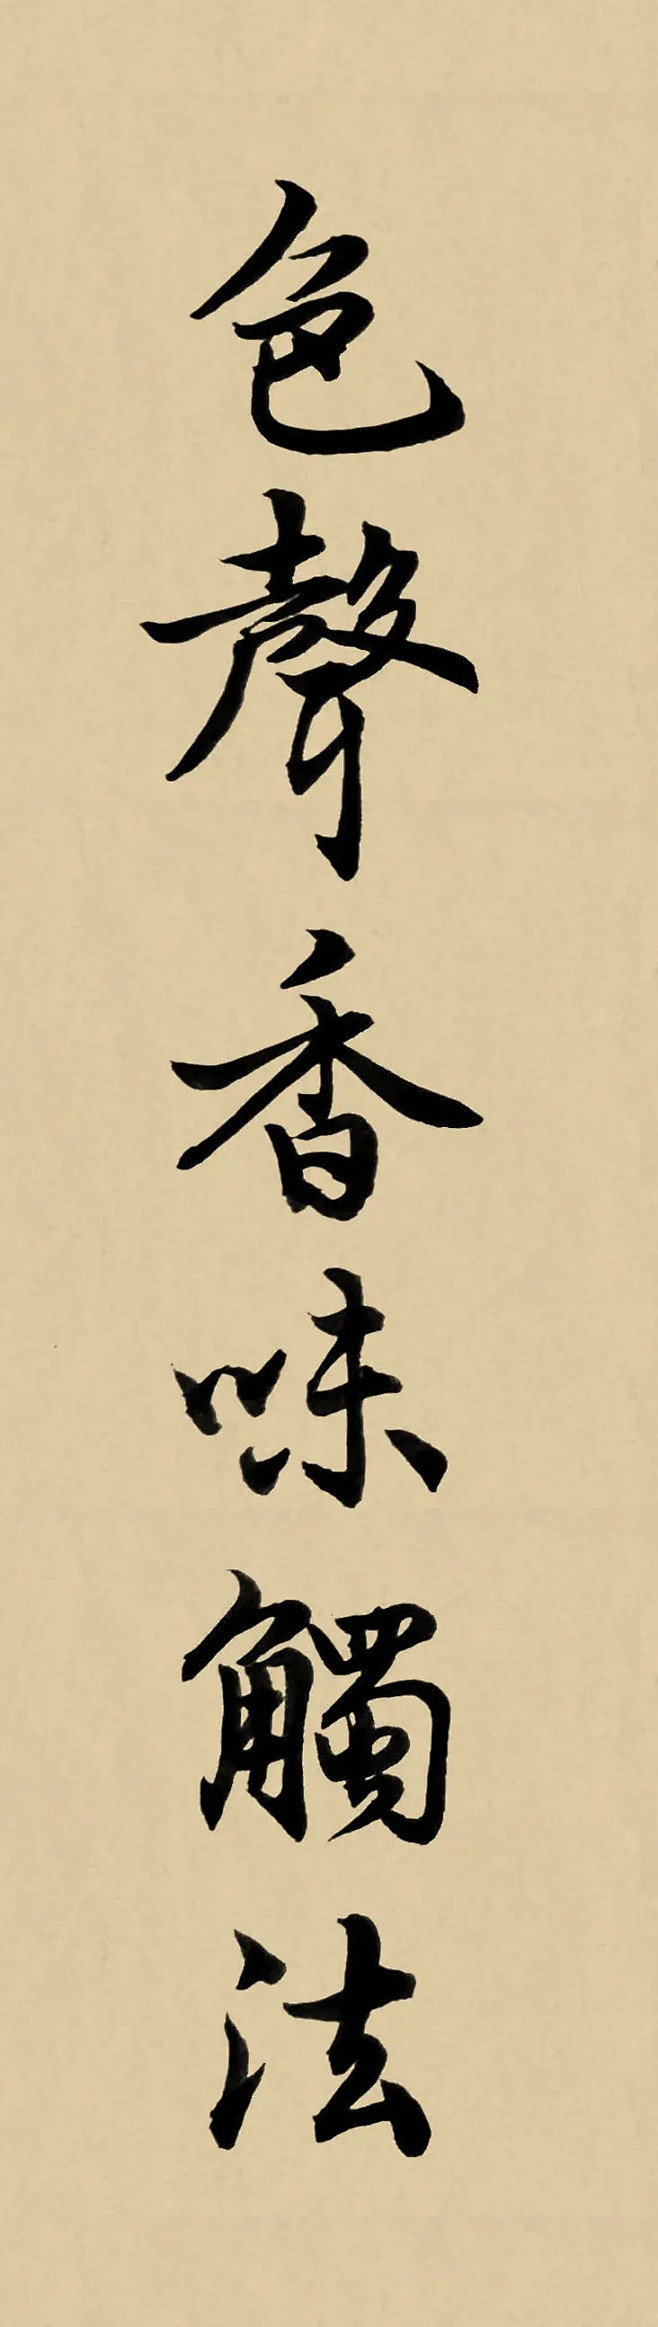 色聲香味觸法